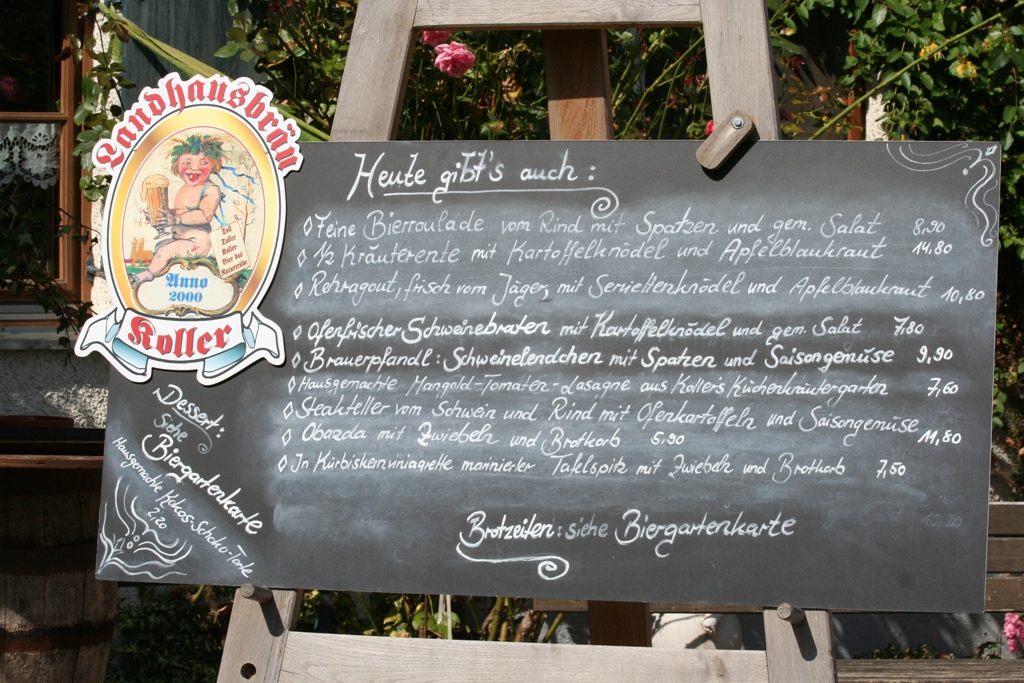 Landhausbräu
Toll
Toller
Koller-
Bier das
Naturtrübe
Anno
2000
Koller
Heute gibt's auch:
◊ Feine Bierroulade vom Rind mit Spatzen und gem. Salat 8,90
◊ ½ Kräuterente mit Kartoffelknödel und Apfelblaukraut 14,80
◊ Rehragout, frisch vom Jäger, mit Serviettenknödel und Apfelblaukraut 10,80
◊ Ofenfrischer Schweinebraten mit Kartoffelknödel und gem. Salat 7,80
◊ Brauerpfandl: Schweinelendchen mit Spatzen und Saisongemüse 9,90
◊ Hausgemachte Mangold-Tomaten-Lasagne aus Koller's Küchenkräutergarten 7,60
◊ Steakteller vom Schwein und Rind mit Ofenkartoffeln und Saisongemüse 11,80
◊ Obazda mit Zwiebeln und Brotkorb 5,90
◊ In Kürbiskernvinaigrette marinierter Tafelspitz mit Zwiebeln und Brotkorb 7,50
Brotzeiten: siehe Biergartenkarte
Dessert:
Siehe
Biergartenkarte
Hausgemachte Kokos-Schoko-Torte
2,20